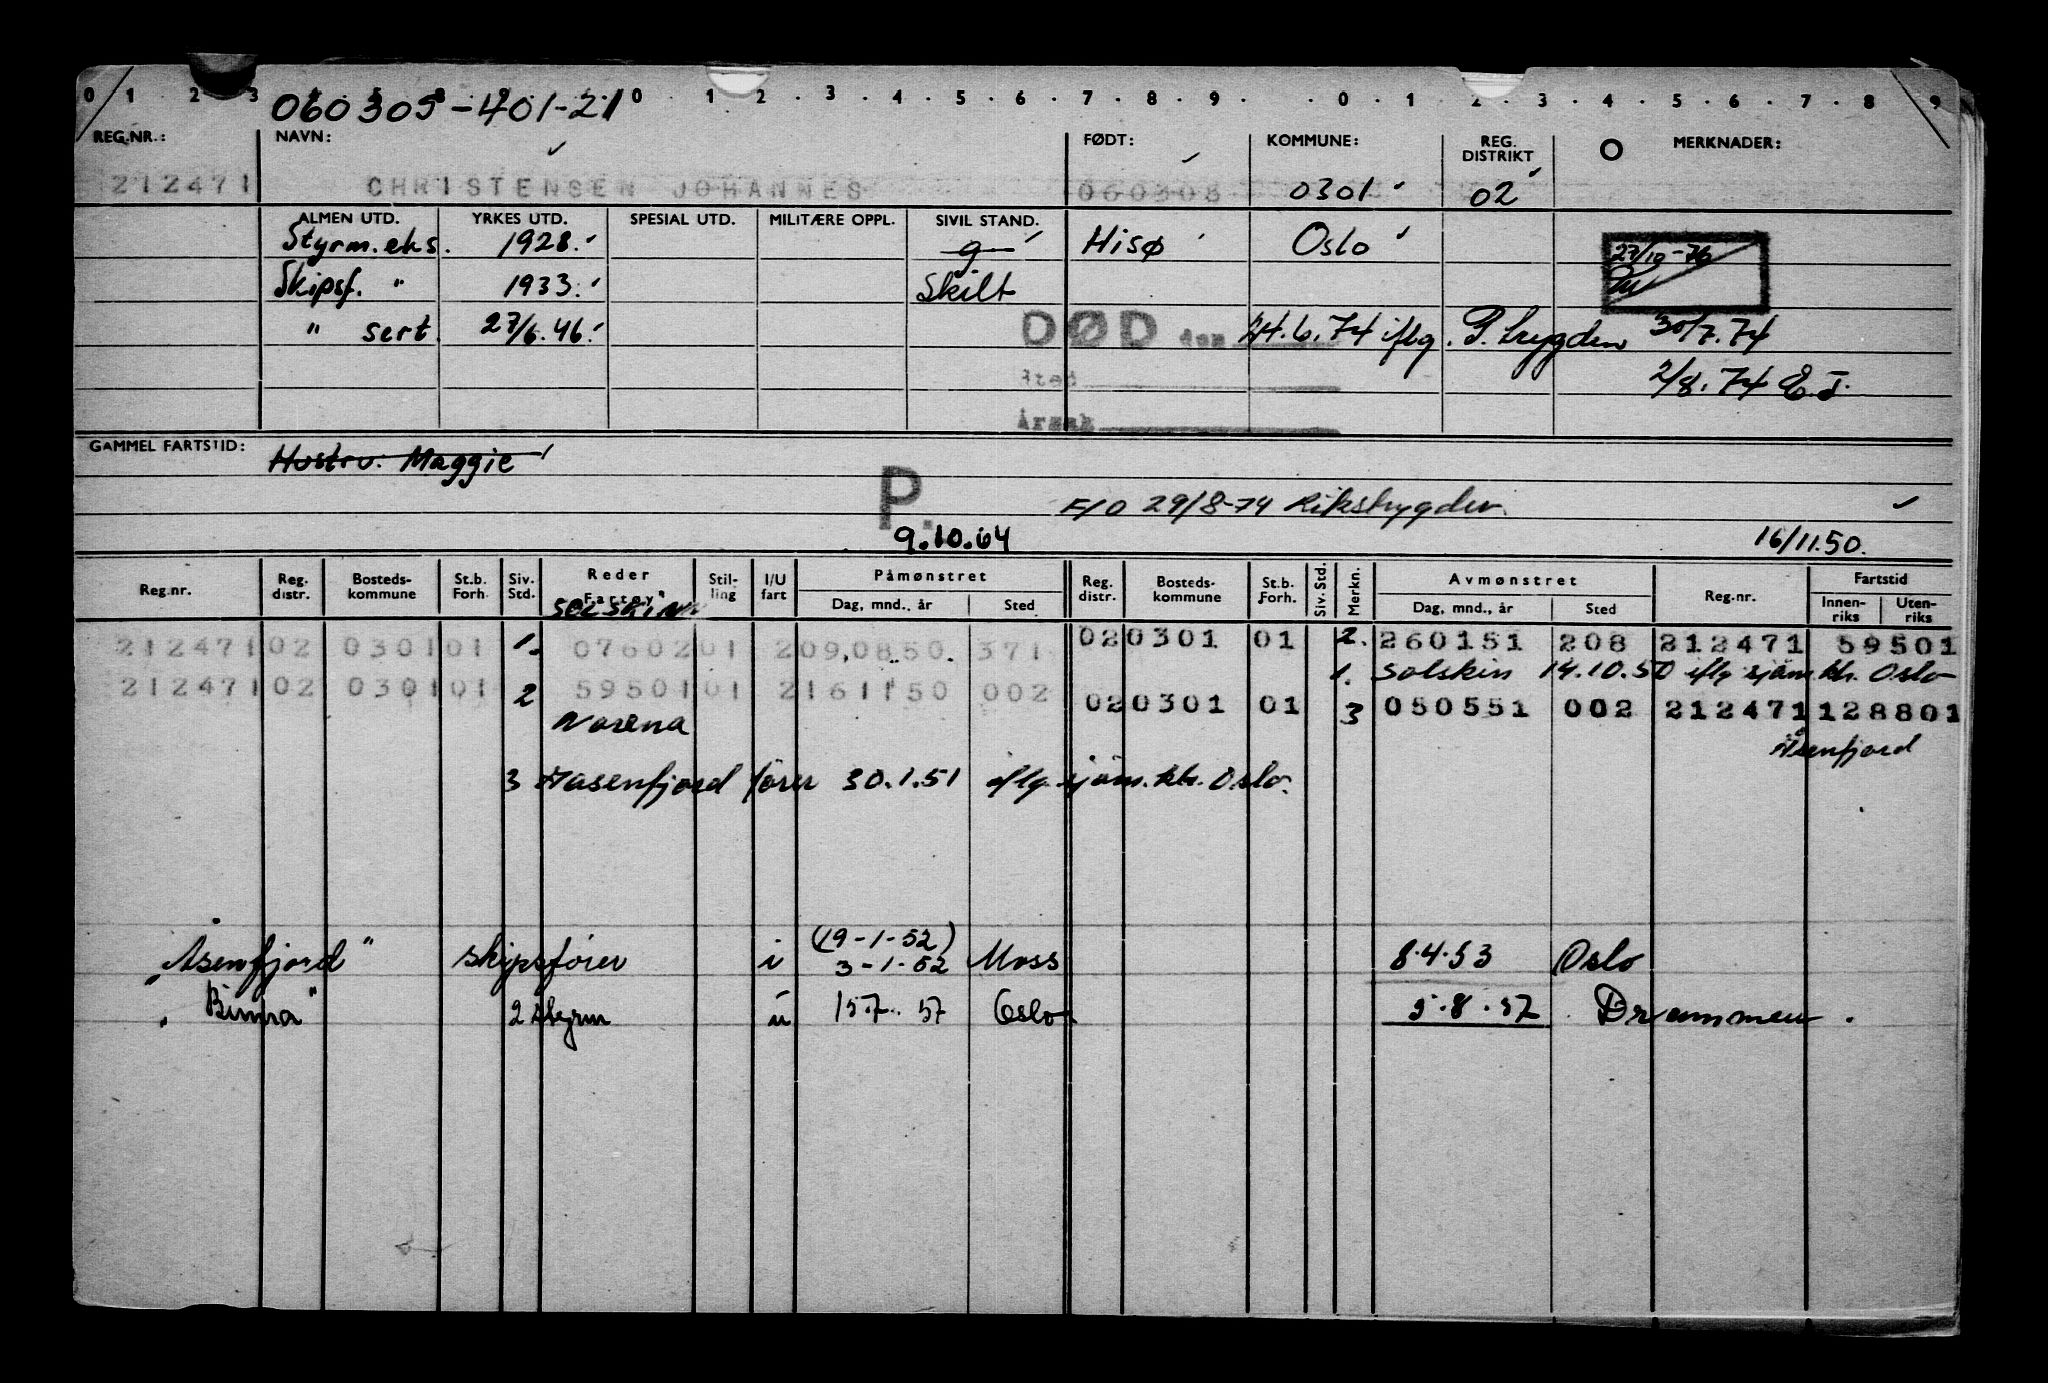 0 1 2 3 0 1 2 3 4 5 6 7 8 9 0 1 2 3 4 5 6 7 8 9
060305-401-21
REG.NR.: NAVN: FØDT: KOMMUNE: REG. DISTRIKT MERKNADER:
212471 CHRISTENSEN JOHANNES 060308 0301 02
ALMEN UTD. YRKES UTD. SPESIAL UTD. MILITÆRE OPPL. SIVIL STAND.
Styrm.eks. 1928. g Hisø Oslo 27/10-76
Skipsf. " 1933. Skilt
" sert. 27/6.46. DØD den 24.6.74 iflg. P. trygden 30/7.74
Sted 2/8.74 E.J.
Årsak
GAMMEL FARTSTID: Hustru: Maggie
P. F/O 29/8-74 Rikstrygden.
9.10.64 16/11.50.
Reg.nr. Reg. distr. Bosteds- kommune St.b. Forh. Siv. Std. Reder Fartøy Stil- ling I/U fart Påmønstret Dag, mnd., år Sted Reg. distr. Bosteds- kommune St.b. Forh. Siv. Std. Merkn. Avmønstret Dag, mnd., år Sted Reg.nr. Fartstid Innen- riks Uten- riks
SOLSKIN
212471 02 0301 01 1. 07602 01 2 09.08.50. 371 02 0301 01 2. 260151 208 212471 59501
1. Solskin 14.10.50 iflg sjøm.ktr. Oslo
212471 02 0301 01 2 59501 01 2 161150 002 02 0301 01 3 050551 002 212471 128801
Norena Åsenfjord
3 Aasenfjord fører 30.1.51 iflg. sjøm.ktr. Oslo.
(19-1-52)
"Åsenfjord" skipsfører i 3-1-52 Moss 8.4.53 Oslo
"Binna" 2 styrm u 15.7.57 Oslo 5.8.57 Drammen.